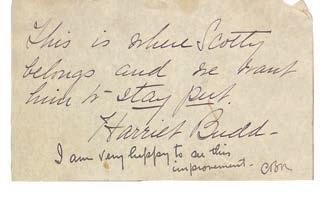 This is where Scotty
belongs and we want
him to stay put.
Harriet Budd -
I am very happy to see this
improvement -